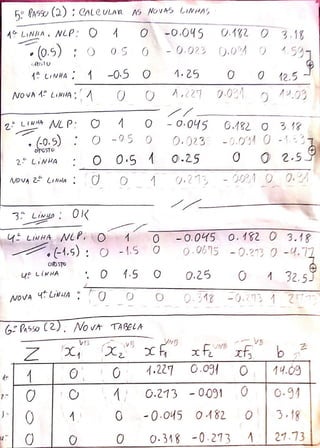 5º PASSO (2): CALCULAR AS NOVAS LINHAS
1ª LINHA. NLP: 0 1 0 -0.045 0.182 0 3.18
• (0.5) : 0 0.5 0 -0.023 0.091 0 1.59
OPOSTO
1ª LINHA : 1 -0.5 0 1.25 0 0 12.5
NOVA 1ª LINHA: 1 0 0 1.227 0.091 0 14.09
2ª LINHA NLP: 0 1 0 -0.045 0.182 0 3.18
• (-0.5) : 0 -0.5 0 0.023 -0.091 0
OPOSTO
2ª LINHA : 0 0.5 1 0.25 0 0 2.5
NOVA 2ª LINHA: 0 0 1 0.273 -0.091 0 0.91
3ª LINHA: OK
4ª LINHA NLP: 0 1 0 -0.045 0.182 0 3.18
• (-1.5) : 0 -1.5 0 0.0675 -0.273 0 -4.77
OPOSTO
4ª LINHA : 0 1.5 0 0.25 0 1 32.5
NOVA 4ª LINHA: 0 0 0 0.318 -0.273 1
6º PASSO (2). NOVA TABELA
Z x1 x2 xF1 xF2 xF3 b
1 0 0 1.227 0.091 0 14.09
0 0 1 0.273 -0.091 0 0.91
0 1 0 -0.045 0.182 0 3.18
0 0 0 0.318 -0.273 1 27.73